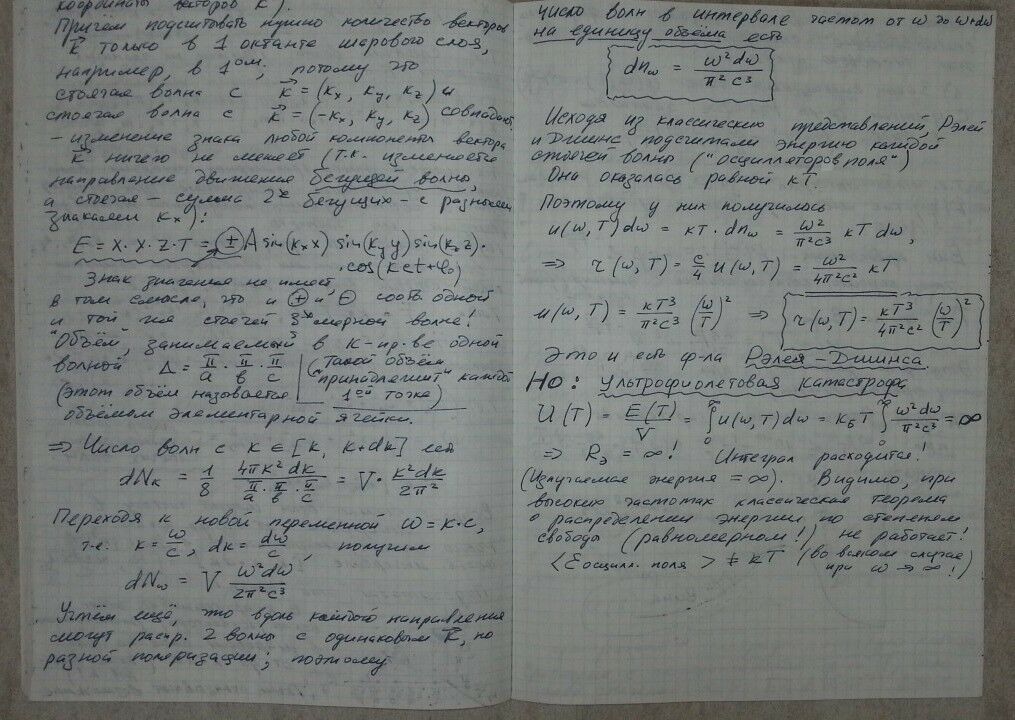 координаты векторов k⃗).
Причём подсчитывать нужно количество векторов
k⃗ только в 1 октанте шарового слоя,
например, в 1ом; потому что
стоячая волна с k⃗ = (kx, ky, kz) и
стоячая волна с k⃗ = (-kx, ky, kz) совпадают
- изменение знака любой компоненты вектора
k⃗ ничего не меняет (т.к. изменяется
направление движения бегущей волны,
а стоячая - сумма 2х бегущих - с разными
знаками kx):
E = X·X·Z·T = ± A sin(kx x) sin(ky y) sin(kz z)·
·cos(kct+φ0)
Знак значения не имеет
в том смысле, что и ⊕ и ⊖ соотв одной
и той же стоячей 3х мерной волне!
"Объём, занимаемый в k-пр-ве одной
волной Δ = π/a · π/b · π/c (Такой объём
"принадлежит" каждой
(этот объём называется 1ой точке)
объёмом элементарной ячейки.
⇒ Число волн с k ∈ [k, k+dk] есть
dNk = 1/8 · 4πk²dk / (π/a · π/b · π/c) = V · k²dk / 2π²
Переходя к новой переменной ω = k·c,
т.е. k = ω/c, dk = dω/c, получим
dNω = V ω²dω / 2π²c³
Учтём ещё, что вдоль каждого направления
могут распр. 2 волны с одинаковым k⃗, но
разной поляризации; поэтому
число волн в интервале частот от ω до ω+dω
на единицу объёма есть
dnω = ω²dω / π²c³
Исходя из классических представлений, Рэлей
и Джинс подсчитали энергию каждой
стоячей волны ("осцилляторов поля")
Она оказалась равной kT.
Поэтому у них получилось
u(ω,T)dω = kT·dnω = ω²/π²c³ kT dω,
⇒ r(ω,T) = c/4 u(ω,T) = ω²/4π²c² kT
u(ω,T) = kT³/π²c³ (ω/T)² ⇒ r(ω,T) = kT³/4π²c² (ω/T)²
Это и есть ф-ла Рэлея-Джинса.
Но: Ультрофиолетовая катастрофа
U(T) = E(T)/V = ∫₀^∞ u(ω,T)dω = kБT ∫₀^∞ ω²dω/π²c³ = ∞
⇒ Rэ = ∞! Интеграл расходится!
(Излучаемая энергия = ∞). Видимо, при
высоких частотах классическая теорема
о распределении энергии по степеням
свободы (равномерном!) не работает!
<Eосцилл. поля> ≠ kT (во всяком случае
при ω → ∞!)